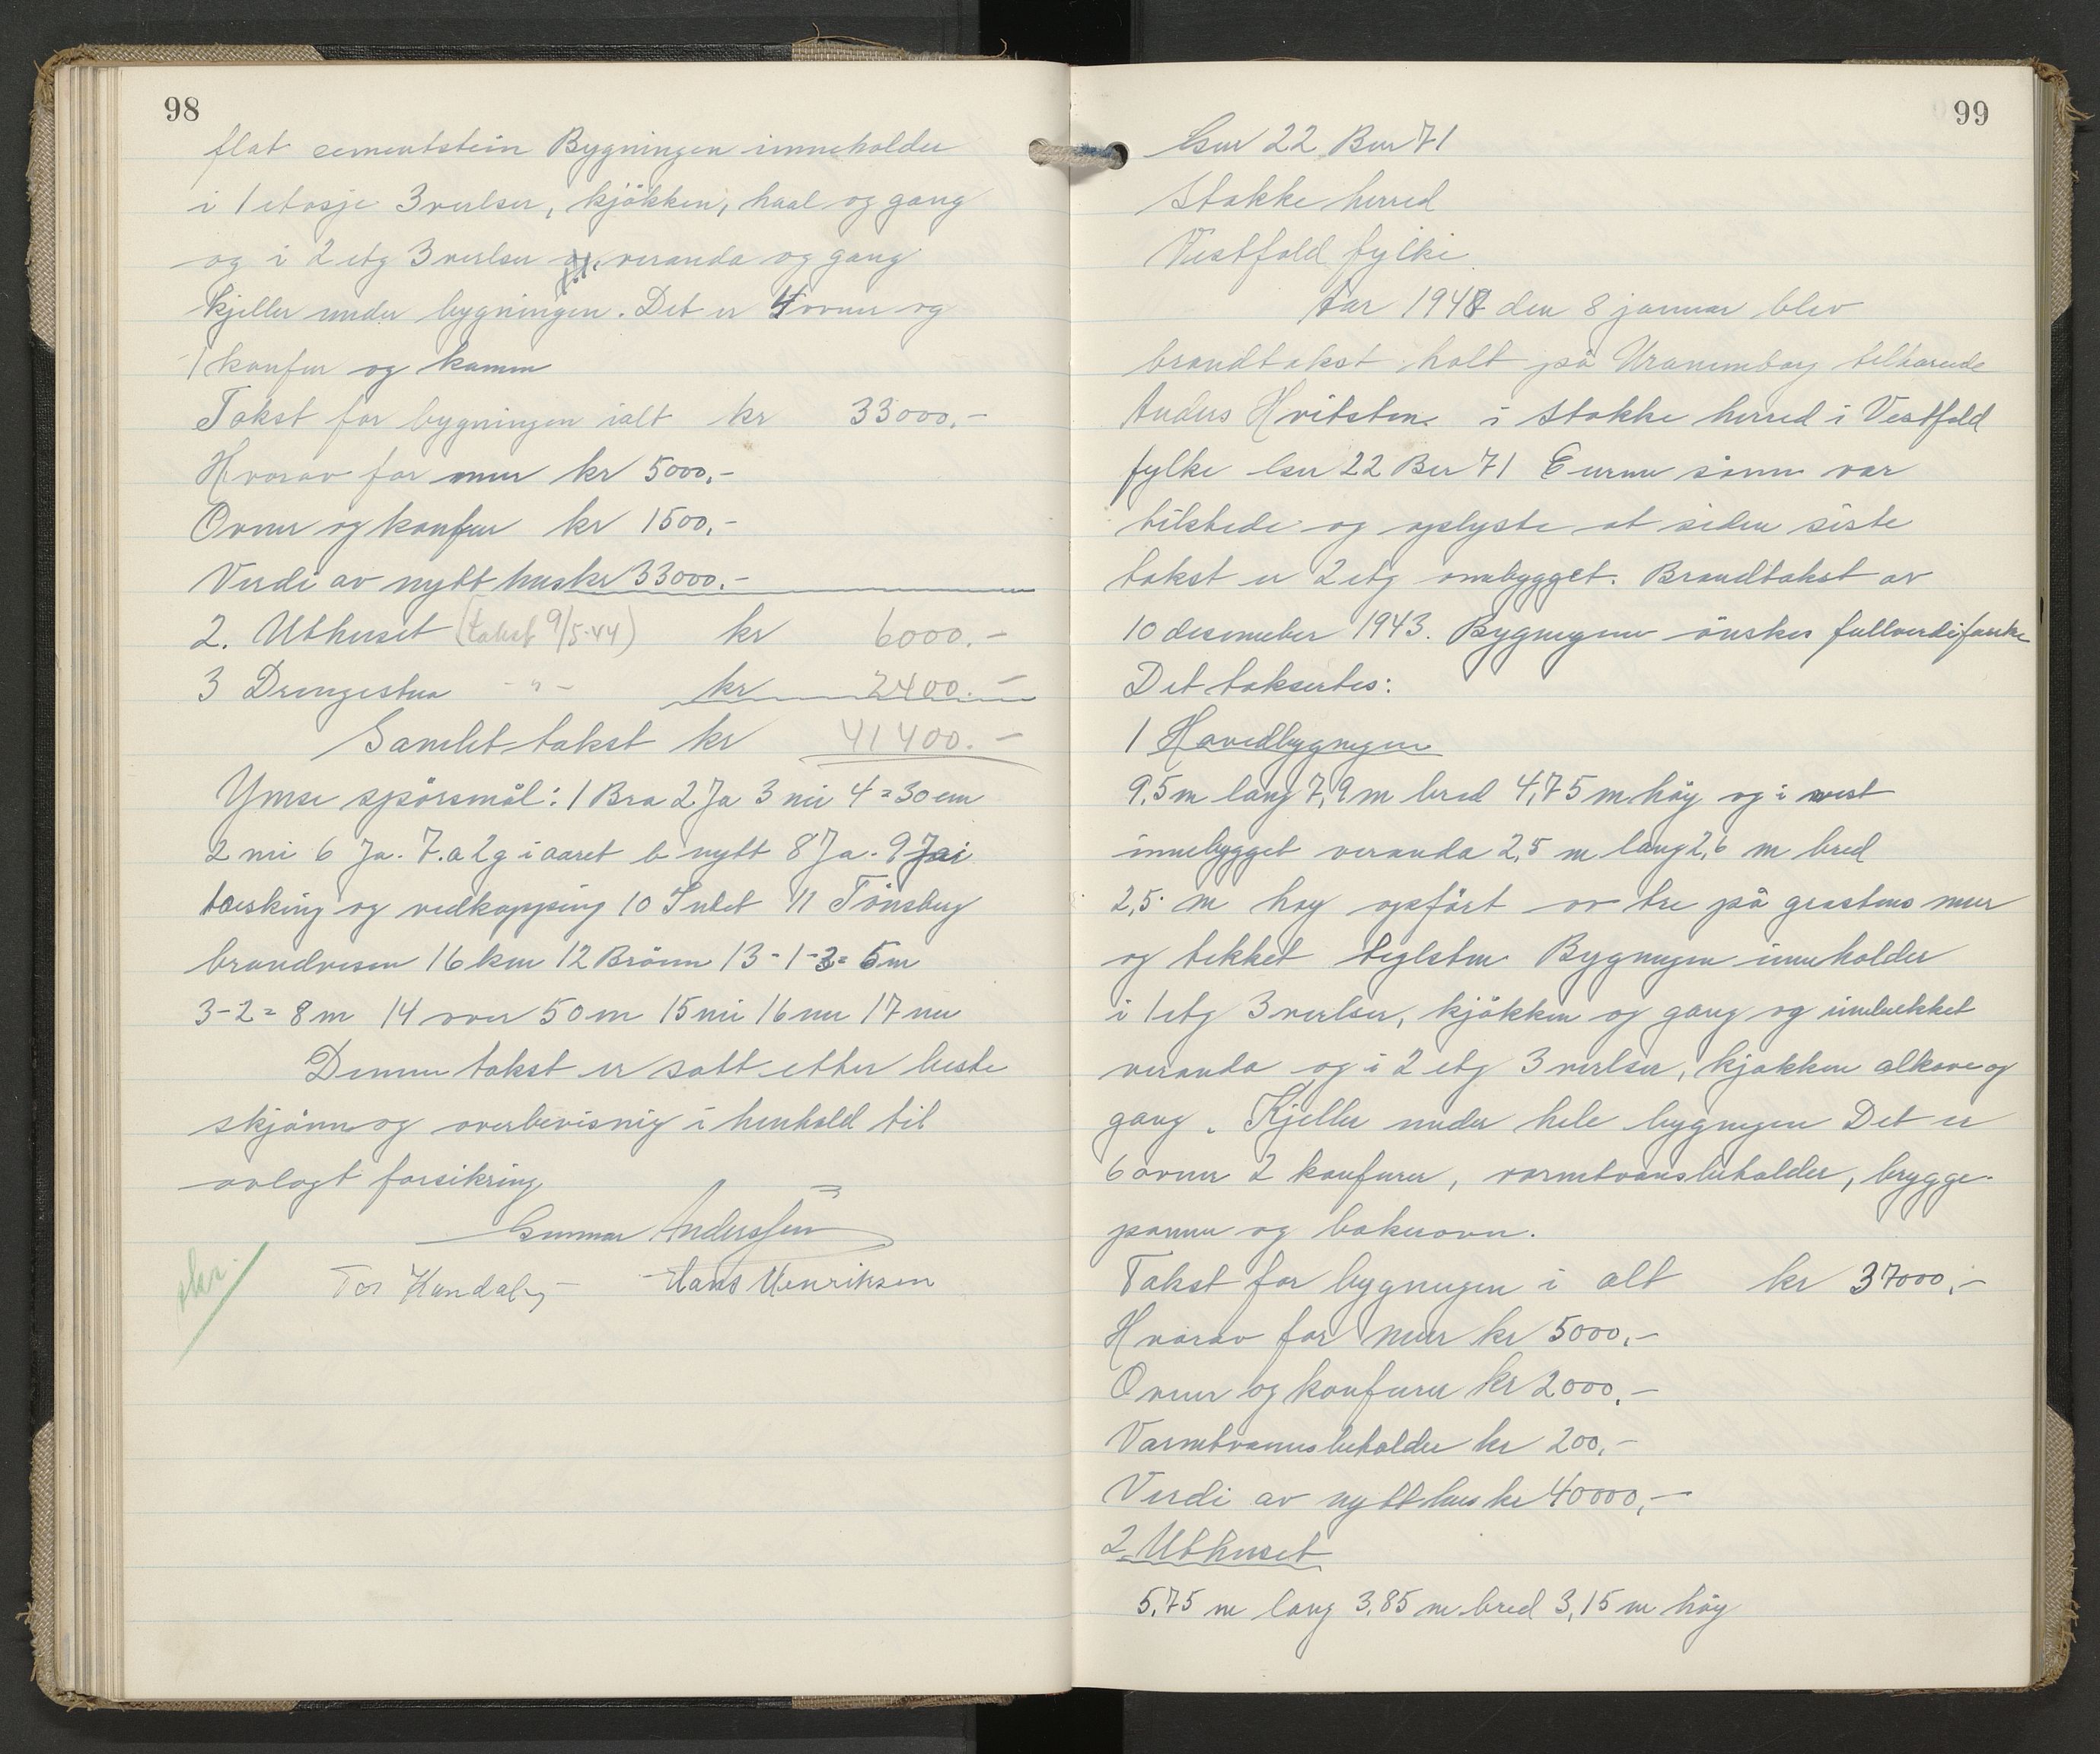 98
flat cementstein Bygningen inneholder
i 1 etasje 3 verlser, kjökken, haal og gang
og i 2 etg 3 verlser veranda og gang
kjeller under bygningen. Det er 4 ovner og
1 komfur og kamin
Takst for bygningen ialt kr 33000.-
Hvorav for mur kr 5000.-
Ovner og komfur kr 1500.-
Verdi av nytt hus kr 33000.-
2. Uthuset (takst 9/5-44) kr 6000.-
3 Drengestua - " - kr 2400.-
Samlet takst kr 41400.-
Ymse spörsmål: 1 Bra 2 Ja 3 nei 4 = 30 cm
2 nei 6 Ja. 7. a 2 g i aaret b nytt 8 Ja. 9 Jai
tresking og vedkapping 10 Intet 11 Tönsberg
brandvesen 16 km 12 Brönn 13 - 1-3= 5 m
3-2= 8 m 14 over 50 m 15 nei 16 nei 17 nei
Denne takst er satt etter beste
skjönn og overbevisnig i henhold til
avlagt forsikring
Gunnar Anderssen
Tor Kandal Hans Henriksen
99
Gnr 22 Bnr 71
Stokke herred
Vestfold fylke
Aar 1948 den 8 januar blev
brandtakst holt på Uranienborg tilhörende
Anders Hvitsten i Stokke herred i Vestfold
fylke Gnr 22 Bnr 71 Eieren sönn var
tilstede og oplyste at siden siste
takst er 2 etg ombygget. Brandtakst av
10 desember 1943. Bygningene önskes fullverdiforsikr
Det taksertes:
1 Hovedbygningen
9,5 m lang 7,9 m bred 4,75 m höy og i vest
innebygget veranda 2,5 m lang 2,6 m bred
2,5 m høy opfört av tre på grastens mur
og tekket teglsten Bygningen inneholder
i 1 etg 3 verlser, kjökken og gang og innelukket
veranda og i 2 etg 3 verlser, kjøkken alkove og
gang. Kjeller under hele bygningen Det er
6 ovner 2 komfurer, varmtvansbeholder, brygge-
panne og bakerovn.
Takst for bygningen i alt kr 37000,-
Hvorav for mur kr 5000,-
Ovner og komfurer kr 2000.-
Varmtvannsbeholder kr 200,-
Verdi av nytt hus kr 40000,-
2 Uthuset
5,75 m lang 3,85 m bred 3,15 m höy